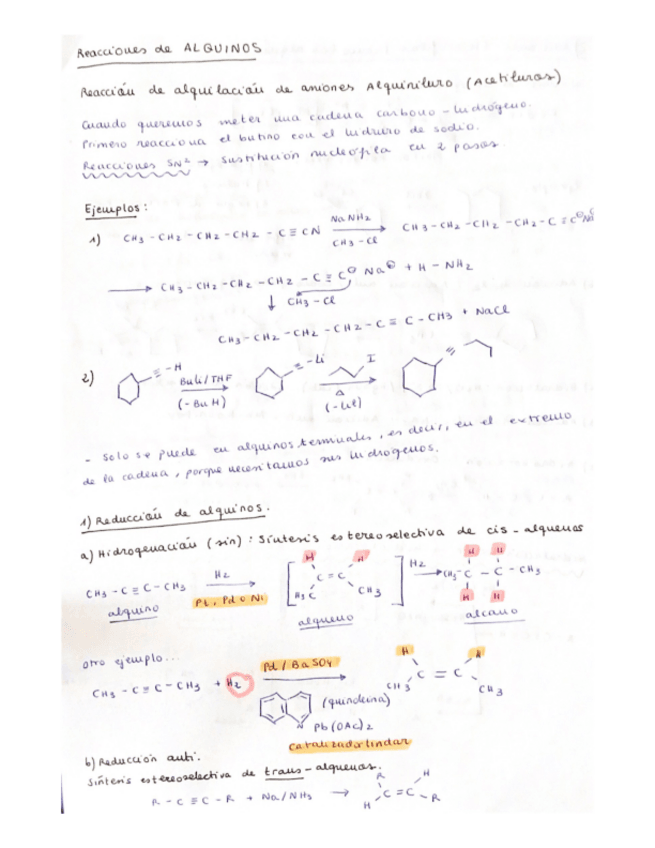 Reacciones de ALQUINOS
Reacción de alquilación de aniones Alquiniluro (Acetiluros)
Cuando queremos meter una cadena carbono - hidrógeno.
Primero reacciona el butino con el hidruro de sodio.
Reacciones SN2 → sustitución nucleófila en 2 pasos.
Ejemplos:
1) CH3 - CH2 - CH2 - CH2 - C ≡ CN NaNH2 CH3 - Cl → CH3 - CH2 - CH2 - CH2 - C ≡ C⊖ Na
→ CH3 - CH2 - CH2 - CH2 - C ≡ C⊖ Na⊕ + H - NH2
↓ CH3 - Cl
CH3 - CH2 - CH2 - CH2 - C ≡ C - CH3 + NaCl
2) ≡ - H BuLi / THF (- BuH) → ≡ - Li I Δ (- LiI) →
- Solo se puede en alquinos terminales, es decir, en el extremo
de la cadena, porque necesitamos sus hidrógenos.
1) Reducción de alquinos.
a) Hidrogenación (sin): Síntesis estereoselectiva de cis - alquenos
CH3 - C ≡ C - CH3 H2 → Pt, Pd o Ni [ H H C = C H3C CH3 ] H2 → H H CH3 - C - C - CH3 H H
alquino alqueno alcano
otro ejemplo...
CH3 - C ≡ C - CH3 + H2 Pd / BaSO4 → H H C = C CH3 CH3
N (quinoleina)
Pb(OAc)2
catalizador lindar
b) Reducción anti.
Síntesis estereoselectiva de trans - alquenos.
R - C ≡ C - R + Na / NH3 → R H C = C H R